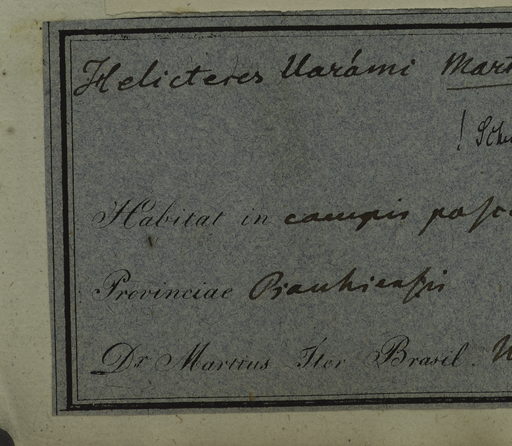 Helicteres Uarámi Mart
! Sch
Habitat in campis pasc
Provinciae Piauhiensis
Dr. Martius Iter Brasil.